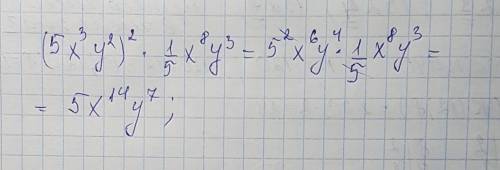 (5x³y²)² · 1/5 x⁸y³ = 5²x⁶y⁴ · 1/5 x⁸y³ =
= 5x¹⁴y⁷;